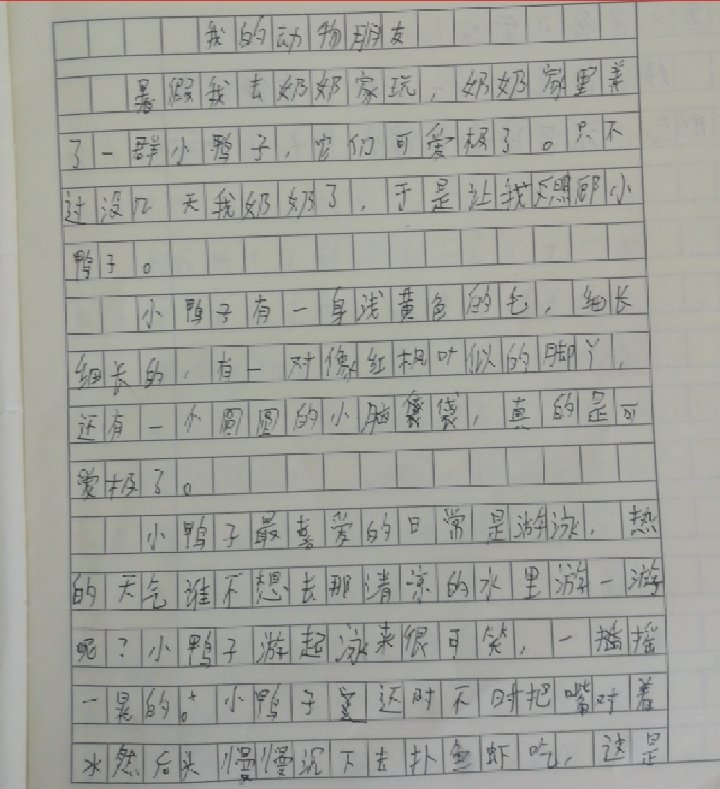 我的动物朋友
暑假我去奶奶家玩，奶奶家里养
了一群小鸭子，它们可爱极了。只不
过没几天我奶奶了，于是让我照顾小
鸭子。
小鸭子有一身浅黄色的毛，细长
细长的，有一对像红枫叶似的脚丫，
还有一个圆圆的小脑袋袋，真的是可
爱极了。
小鸭子最喜爱的日常是游泳，热
的天气谁不想去那清凉的水里游一游
呢？小鸭子游起泳来很可笑，一摇摇
一晃的。小鸭子还时不时把嘴对着
水然后头慢慢沉下去扑鱼虾吃，这是